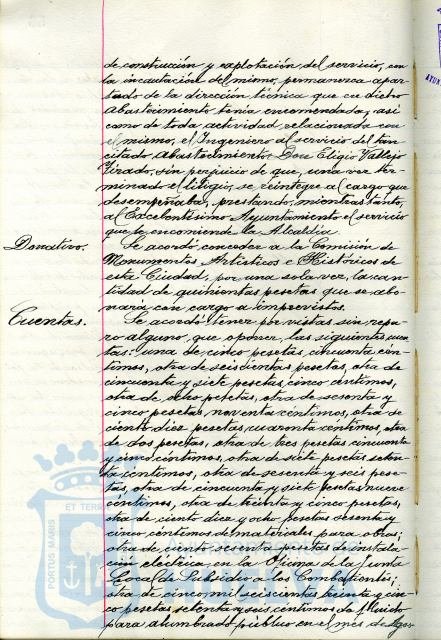 de construcción y explotación del servicio, en
la incautación del mismo, permanezca apar-
tado de la dirección técnica que en dicho
abastecimiento tenía encomendada, así
como de toda actividad relacionada con
el mismo, el Ingeniero al servicio del tan
citado abastecimiento Don Eligio Vallejo
Tirado, sin perjuicio de que, una vez ter-
minado el litigio, se reintegre al cargo que
desempeñaba, prestando, mientras tanto,
al Excelentísimo Ayuntamiento el servicio
que le encomiende la Alcaldía.
Donativo. Se acordó conceder a la Comisión de
Monumentos Artísticos e Históricos de
esta Ciudad, por una sola vez, la can-
tidad de quinientas pesetas que se abo-
nará con cargo a imprevistos.
Cuentas. Se acordó tener por vistas sin repa-
ro alguno, que oponer, las siguientes cuen
tas: una de cinco pesetas, cincuenta cén-
timos, otra de seiscientas pesetas, otra de
cincuenta y siete pesetas, cinco céntimos,
otra de ocho pesetas, otra de sesenta y
cinco pesetas, noventa céntimos, otra de
ciento diez pesetas, cuarenta céntimos, otra
de dos pesetas, otra de tres pesetas cincuenta
y cinco céntimos, otra de siete pesetas seten-
ta céntimos, otra de sesenta y seis pese-
tas, otra de cincuenta y siete pesetas nueve
céntimos, otra de treinta y cinco pesetas,
otra de ciento diez y ocho pesetas sesenta y
cinco céntimos de materiales para obras;
otra de ciento sesenta pesetas de instala-
ción eléctrica, en la Oficina de la Junta
Local de Subsidio a los Combatientes;
otra de cinco mil seiscientas treinta y cin-
co pesetas setenta y seis céntimos de fluido
para alumbrado público en el mes de Agos-
ET TERR
PORTUS MARIS